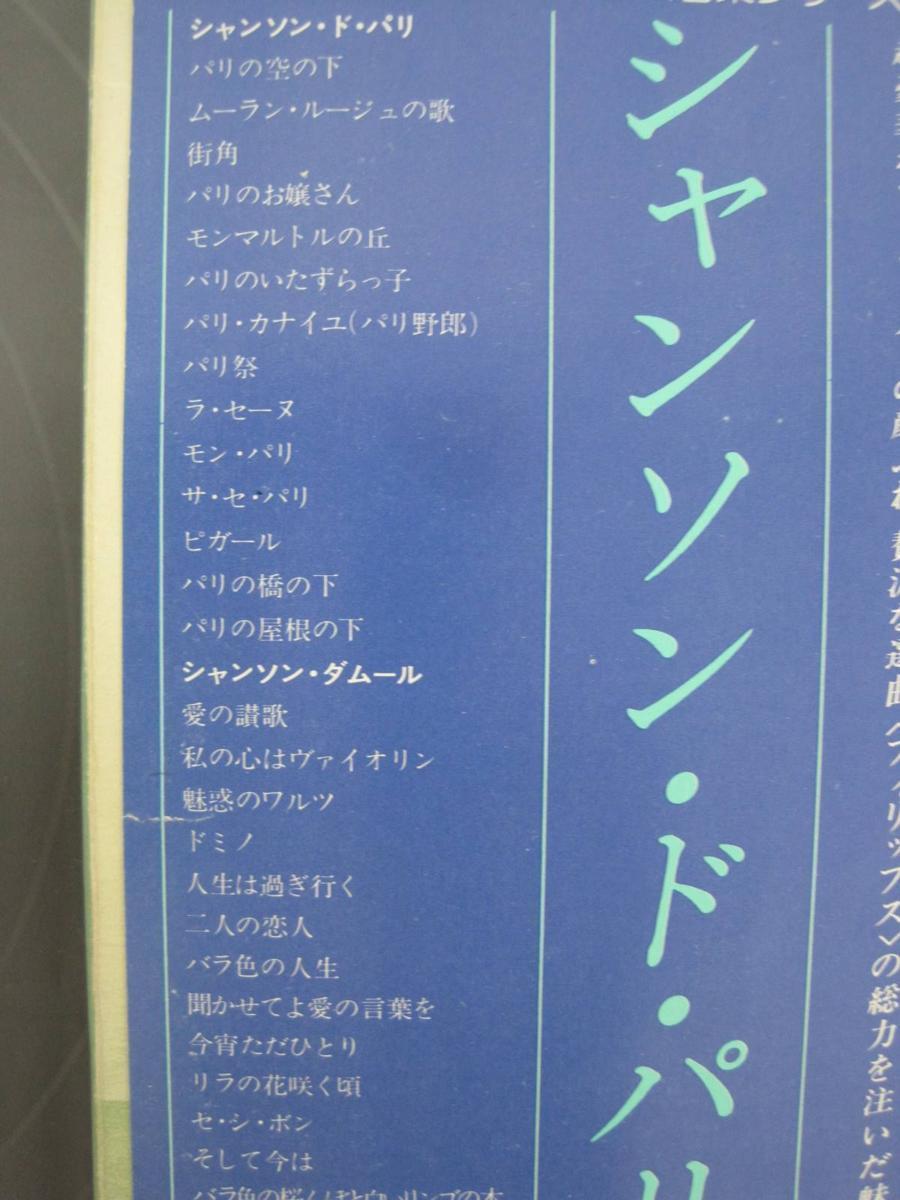 シャンソン・ド・パリ
パリの空の下
ムーラン・ルージュの歌
街角
パリのお嬢さん
モンマルトルの丘
パリのいたずらっ子
パリ・カナイユ(パリ野郎)
パリ祭
ラ・セーヌ
モン・パリ
サ・セ・パリ
ピガール
パリの橋の下
パリの屋根の下
シャンソン・ダムール
愛の讃歌
私の心はヴァイオリン
魅惑のワルツ
ドミノ
人生は過ぎ行く
二人の恋人
バラ色の人生
聞かせてよ愛の言葉を
今宵ただひとり
リラの花咲く頃
セ・シ・ボン
そして今は
シャンソン・ド・パリ
贅沢な選曲〈フィリップス〉の総力を注いだ